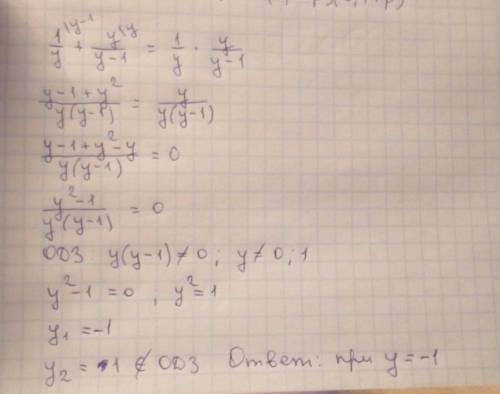 1/y \y-1 + y/(y-1) \y = 1/y · y/(y-1)
(y-1+y²)/(y(y-1)) = y/(y(y-1))
(y-1+y²-y)/(y(y-1)) = 0
(y²-1)/(y(y-1)) = 0
ОДЗ y(y-1)≠0; y≠0; 1
y²-1=0, y²=1
y₁=-1
y₂=1 ∉ ОДЗ Ответ: при y=-1